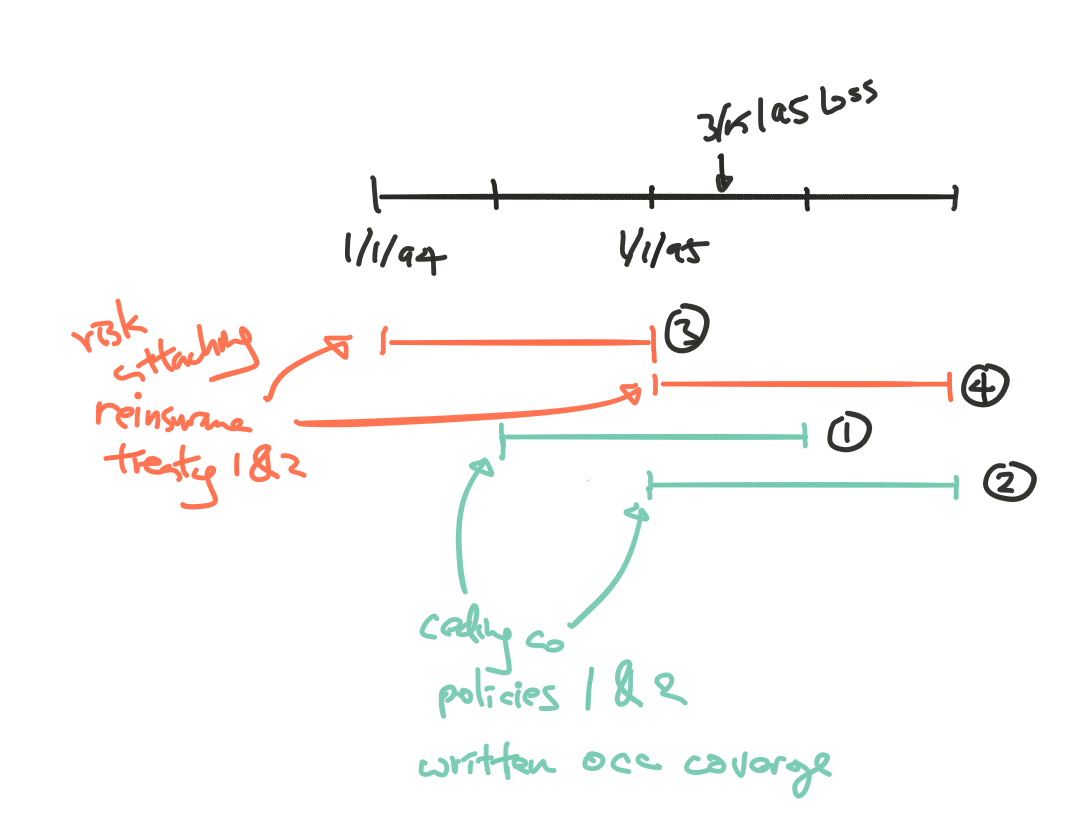 3/15/95 loss
1/1/94
1/1/95
risk
attaching
reinsurance
treaty 1 & 2
③
④
①
②
ceding co
policies 1 & 2
written occ coverge